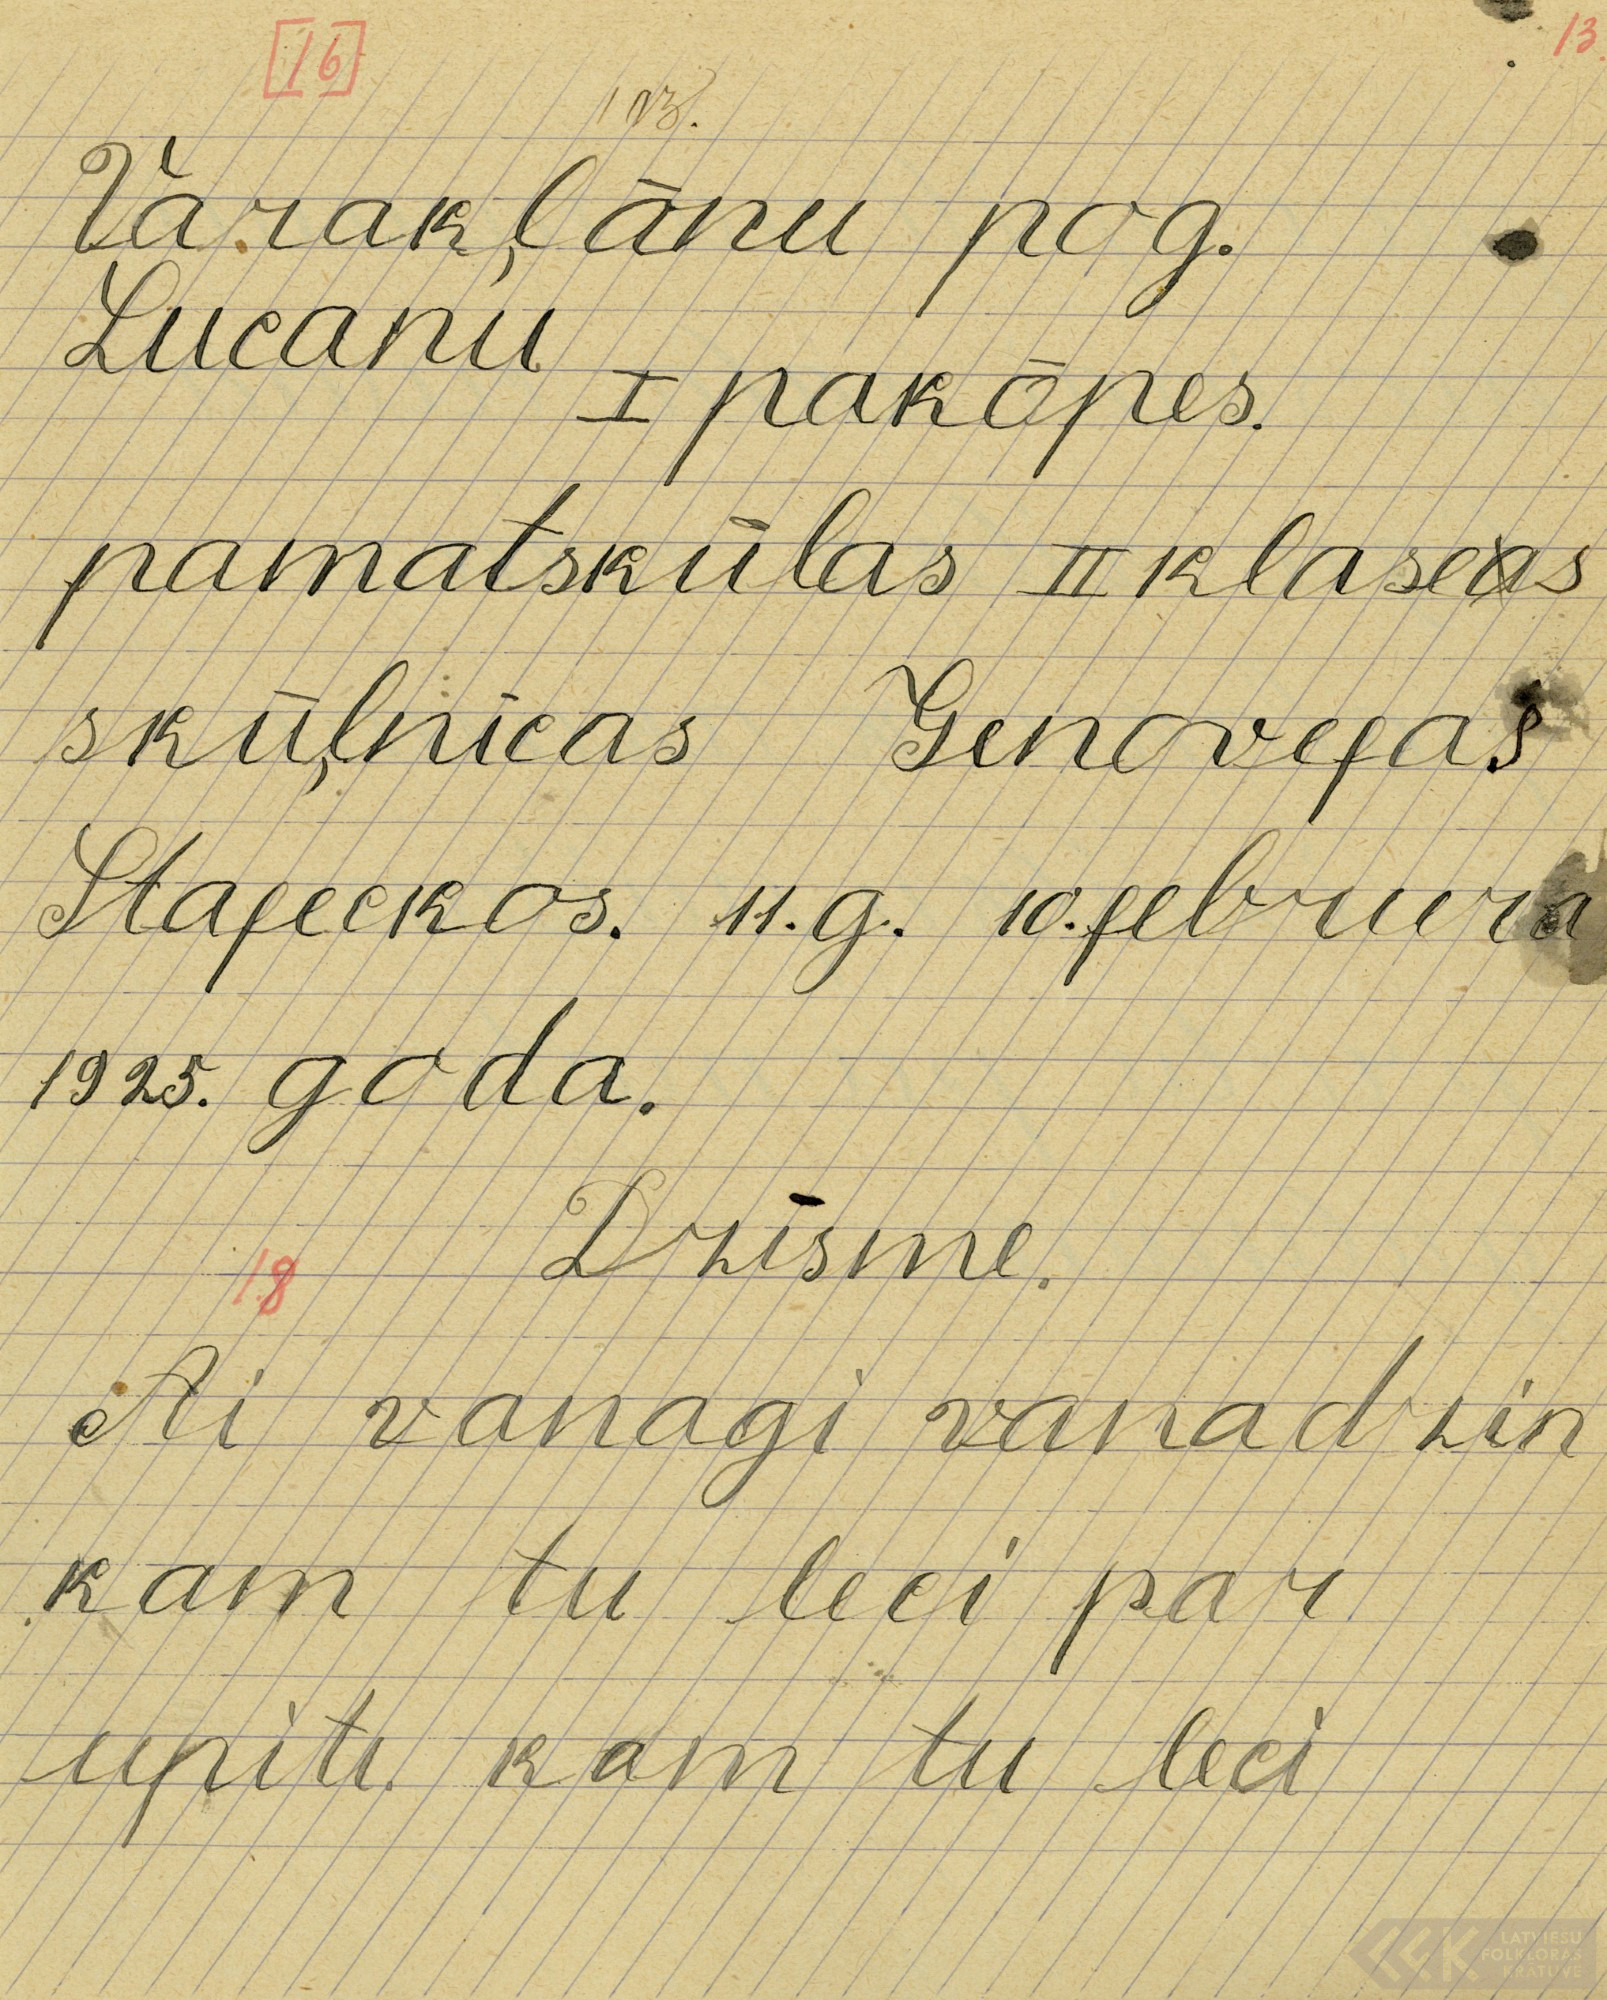 [16] 13.
103.
Vàrakļānu pog.
Lucanu
I pakōpes.
pamatskūlas II klases
skūļnīcas Genovefas
Stafeckos. 11.g. 10.februra
1925. goda.
Dzīsme.
18
Ai vanagi vanadzin
kam tu leci par
upiti. kam tu leci
LATVIEŠU
FOLKLORAS
KRĀTUVE